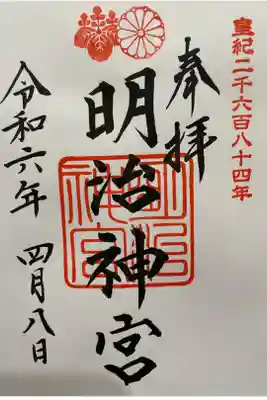 皇紀二千六百八十四年
奉拝
明治神宮
令和六年 四月八日
明治神宮